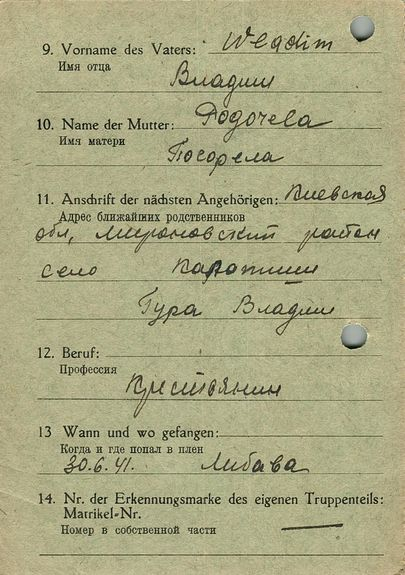 9. Vorname des Vaters: Wladim
Имя отца
Владим
10. Name der Mutter:
Имя матери
11. Anschrift der nächsten Angehörigen: Киевская
Адрес ближайших родственников
обл, Мироновский район
село Карапиши
Гура Владим
12. Beruf:
Профессия
Крестьянин
13 Wann und wo gefangen:
Когда и где попал в плен
30.6.41. Либава
14. Nr. der Erkennungsmarke des eigenen Truppenteils:
Matrikel-Nr.
Номер в собственной части